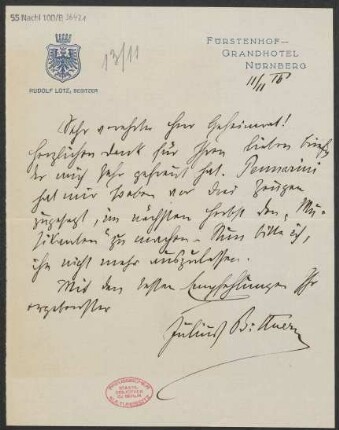 55 Nachl 100/B
13/11
FÜRSTENHOF—
GRANDHOTEL
NÜRNBERG
RUDOLF LOTZ, BESITZER
11/11
Sehr verehrter Herr Geheimrat!
Herzlichen Dank für Ihren lieben Brief,
er mich sehr gefreut hat. Pennarini
hat mir soeben vor drei Zeugen
zugesagt, im nächsten Herbst den „Mu-
sikanten" zu machen. Nun bitte ich,
ihn nicht mehr auszulassen.
Mit den besten Empfehlungen Ihr
ergebenster
Julius Bittner